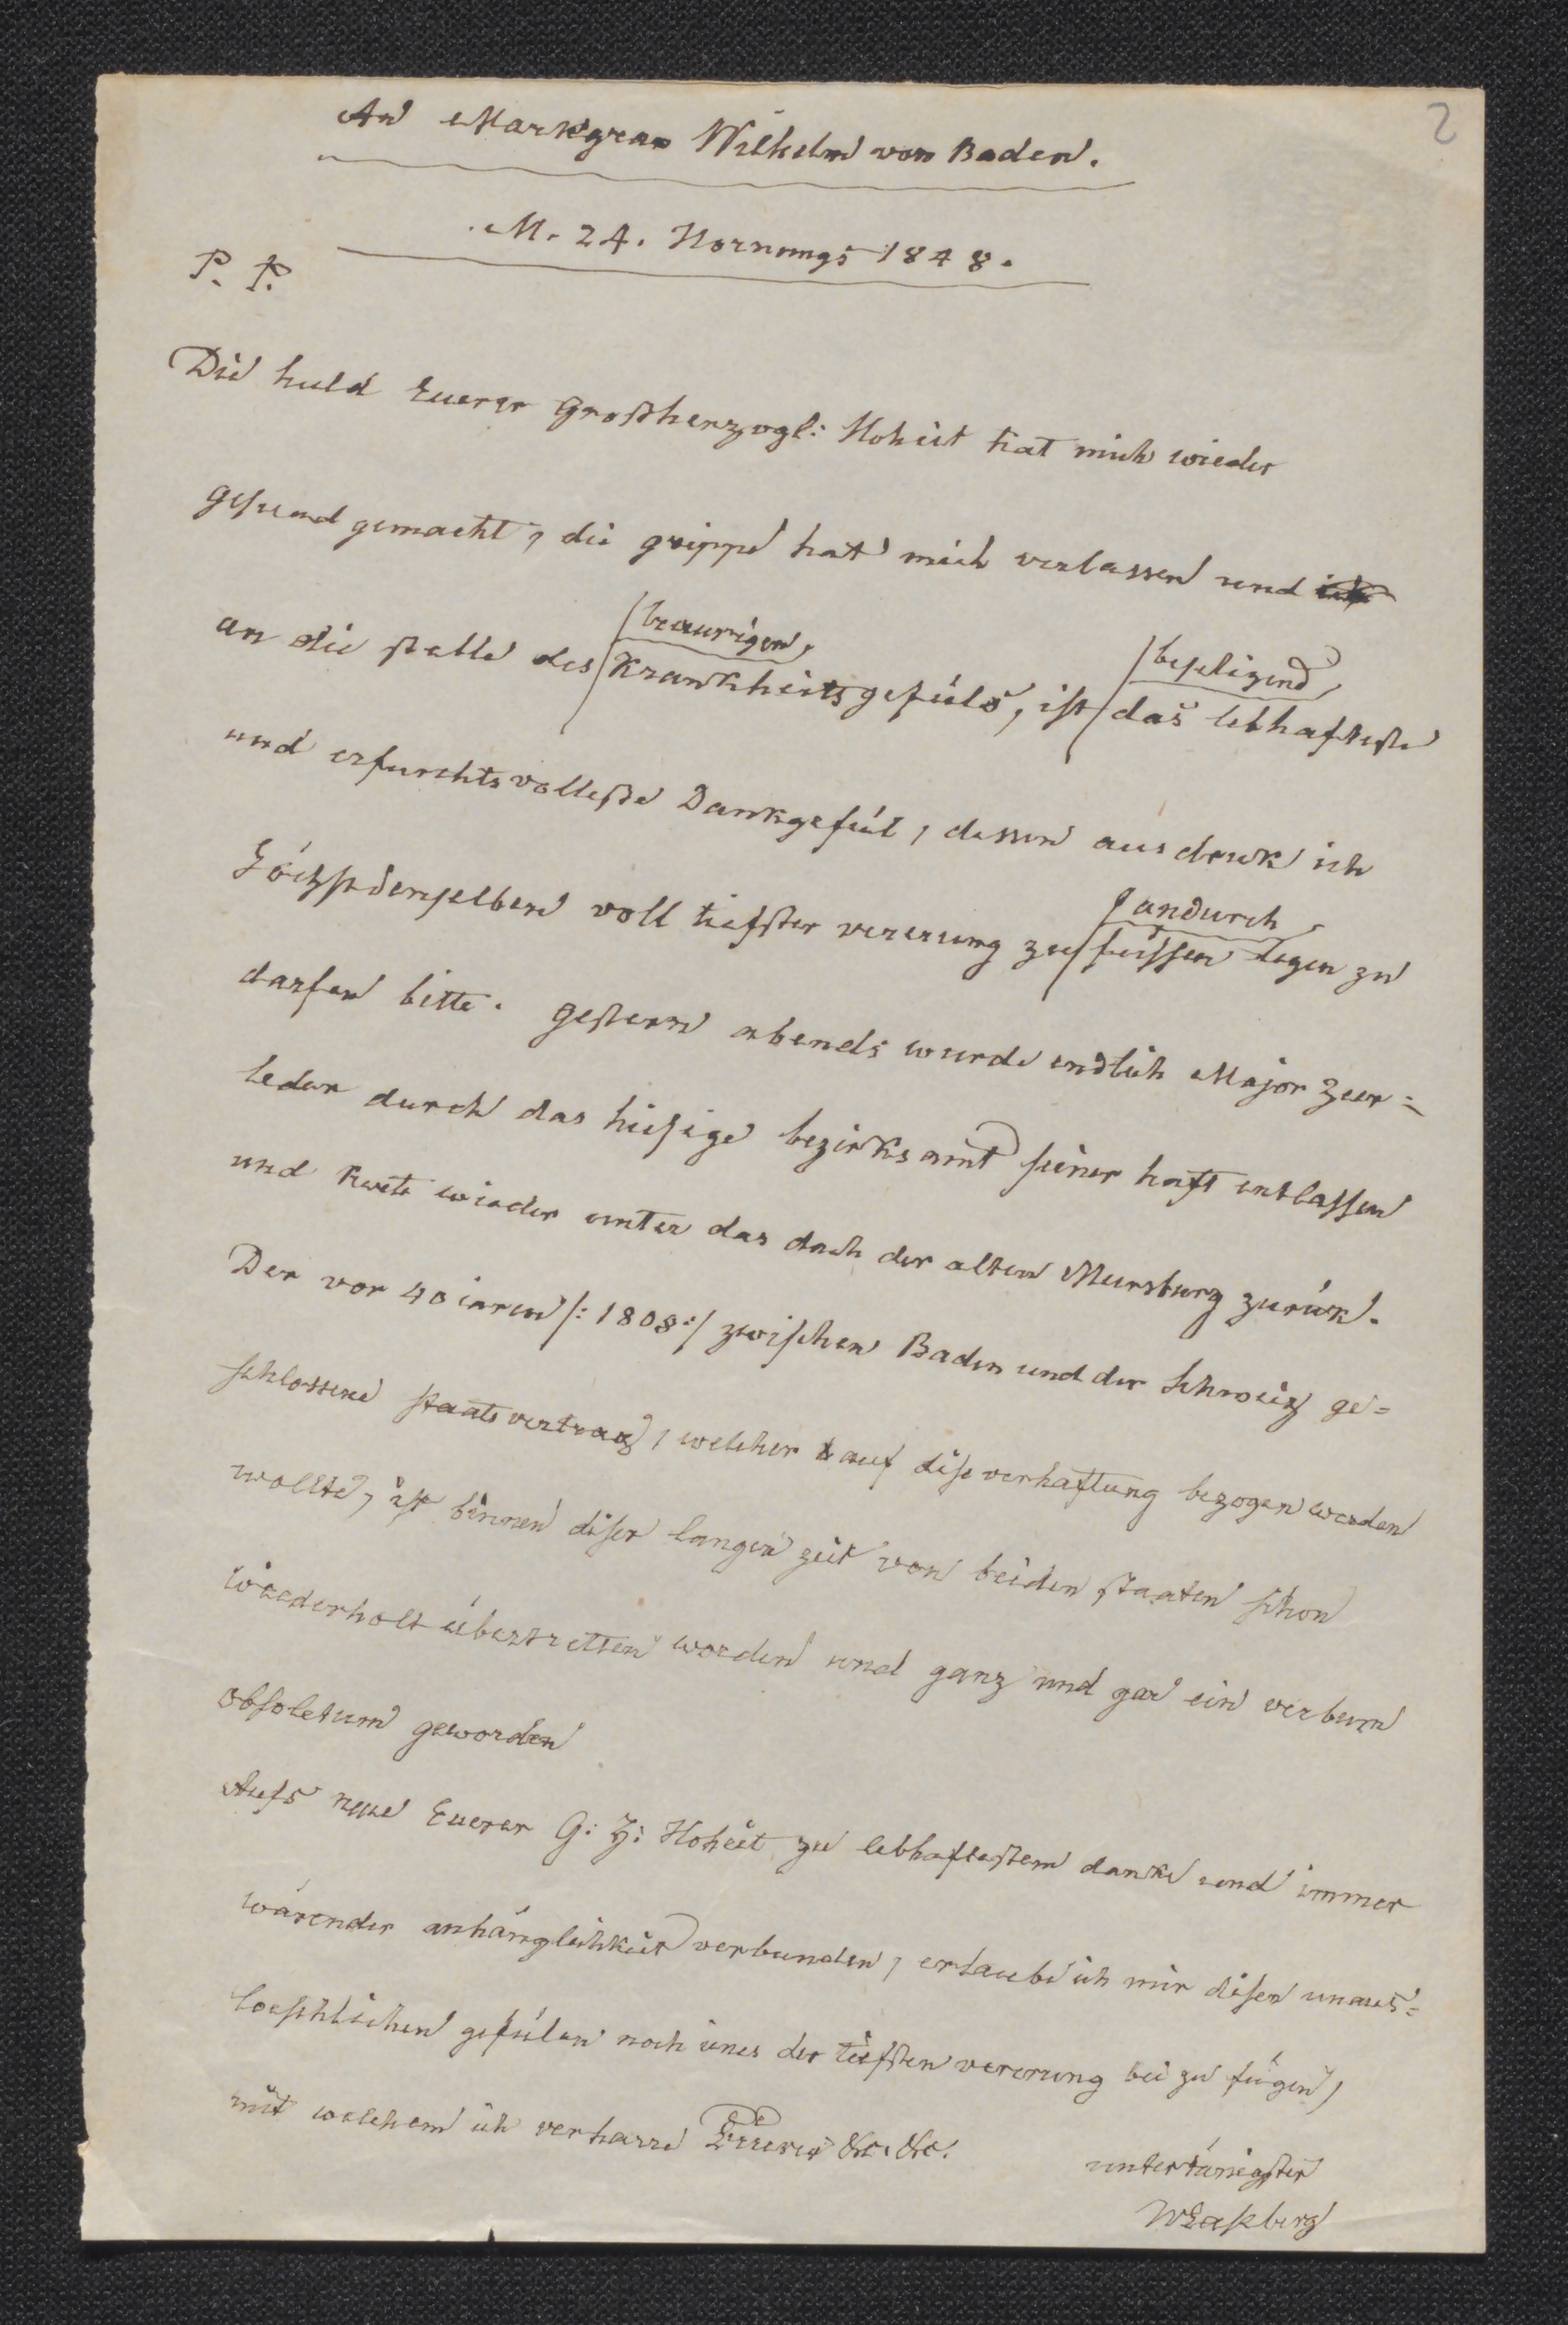 2
An Markgrav Wilhelm von Baden.
M. 24. Hornungs 1848.
P. P.
Die huld Euerer Großherzogl: Hoheit hat mich wieder
gesund gemacht, die grippe hat mich verlassen und
traurigen
beseligend
an die stelle des Krankheitsgefüls, ist das lebhafteste
und erfurchtsvolleste Dankgefül, dessen ausdruk ich
andurch
Höchstdenselben voll tiefster vererung zu füssen legen zu
darfen bitte. gestern abends wurde endlich Major Zeer=
leder durch das hiesige bezirksamt seiner haft entlassen
und kerte wieder unter das dach der alten Mersburg zurük.
Der vor 40 iaren /: 1808 :/ zwischen Baden und der Schweiz ge=
schlossene staatsvertrag, welcher auf dise verhaftung bezogen werden
wollte, ist binnen diser langen zeit von beiden staaten schon
wiederholt übertretten worden und ganz und gar ein verbum
obsoletum geworden
Aufs neue Euerer G: H: Hoheit zu lebhaftestem danke und immer
wärender anhänglichkeit verbunden, erlaube ich mir disen unaus=
loeschlichen gefülen noch eines der tiefsten vererung bei zu fügen,
mit welchem ich verharre Euerer &c. &c.
untertänigster
JvLaßberg